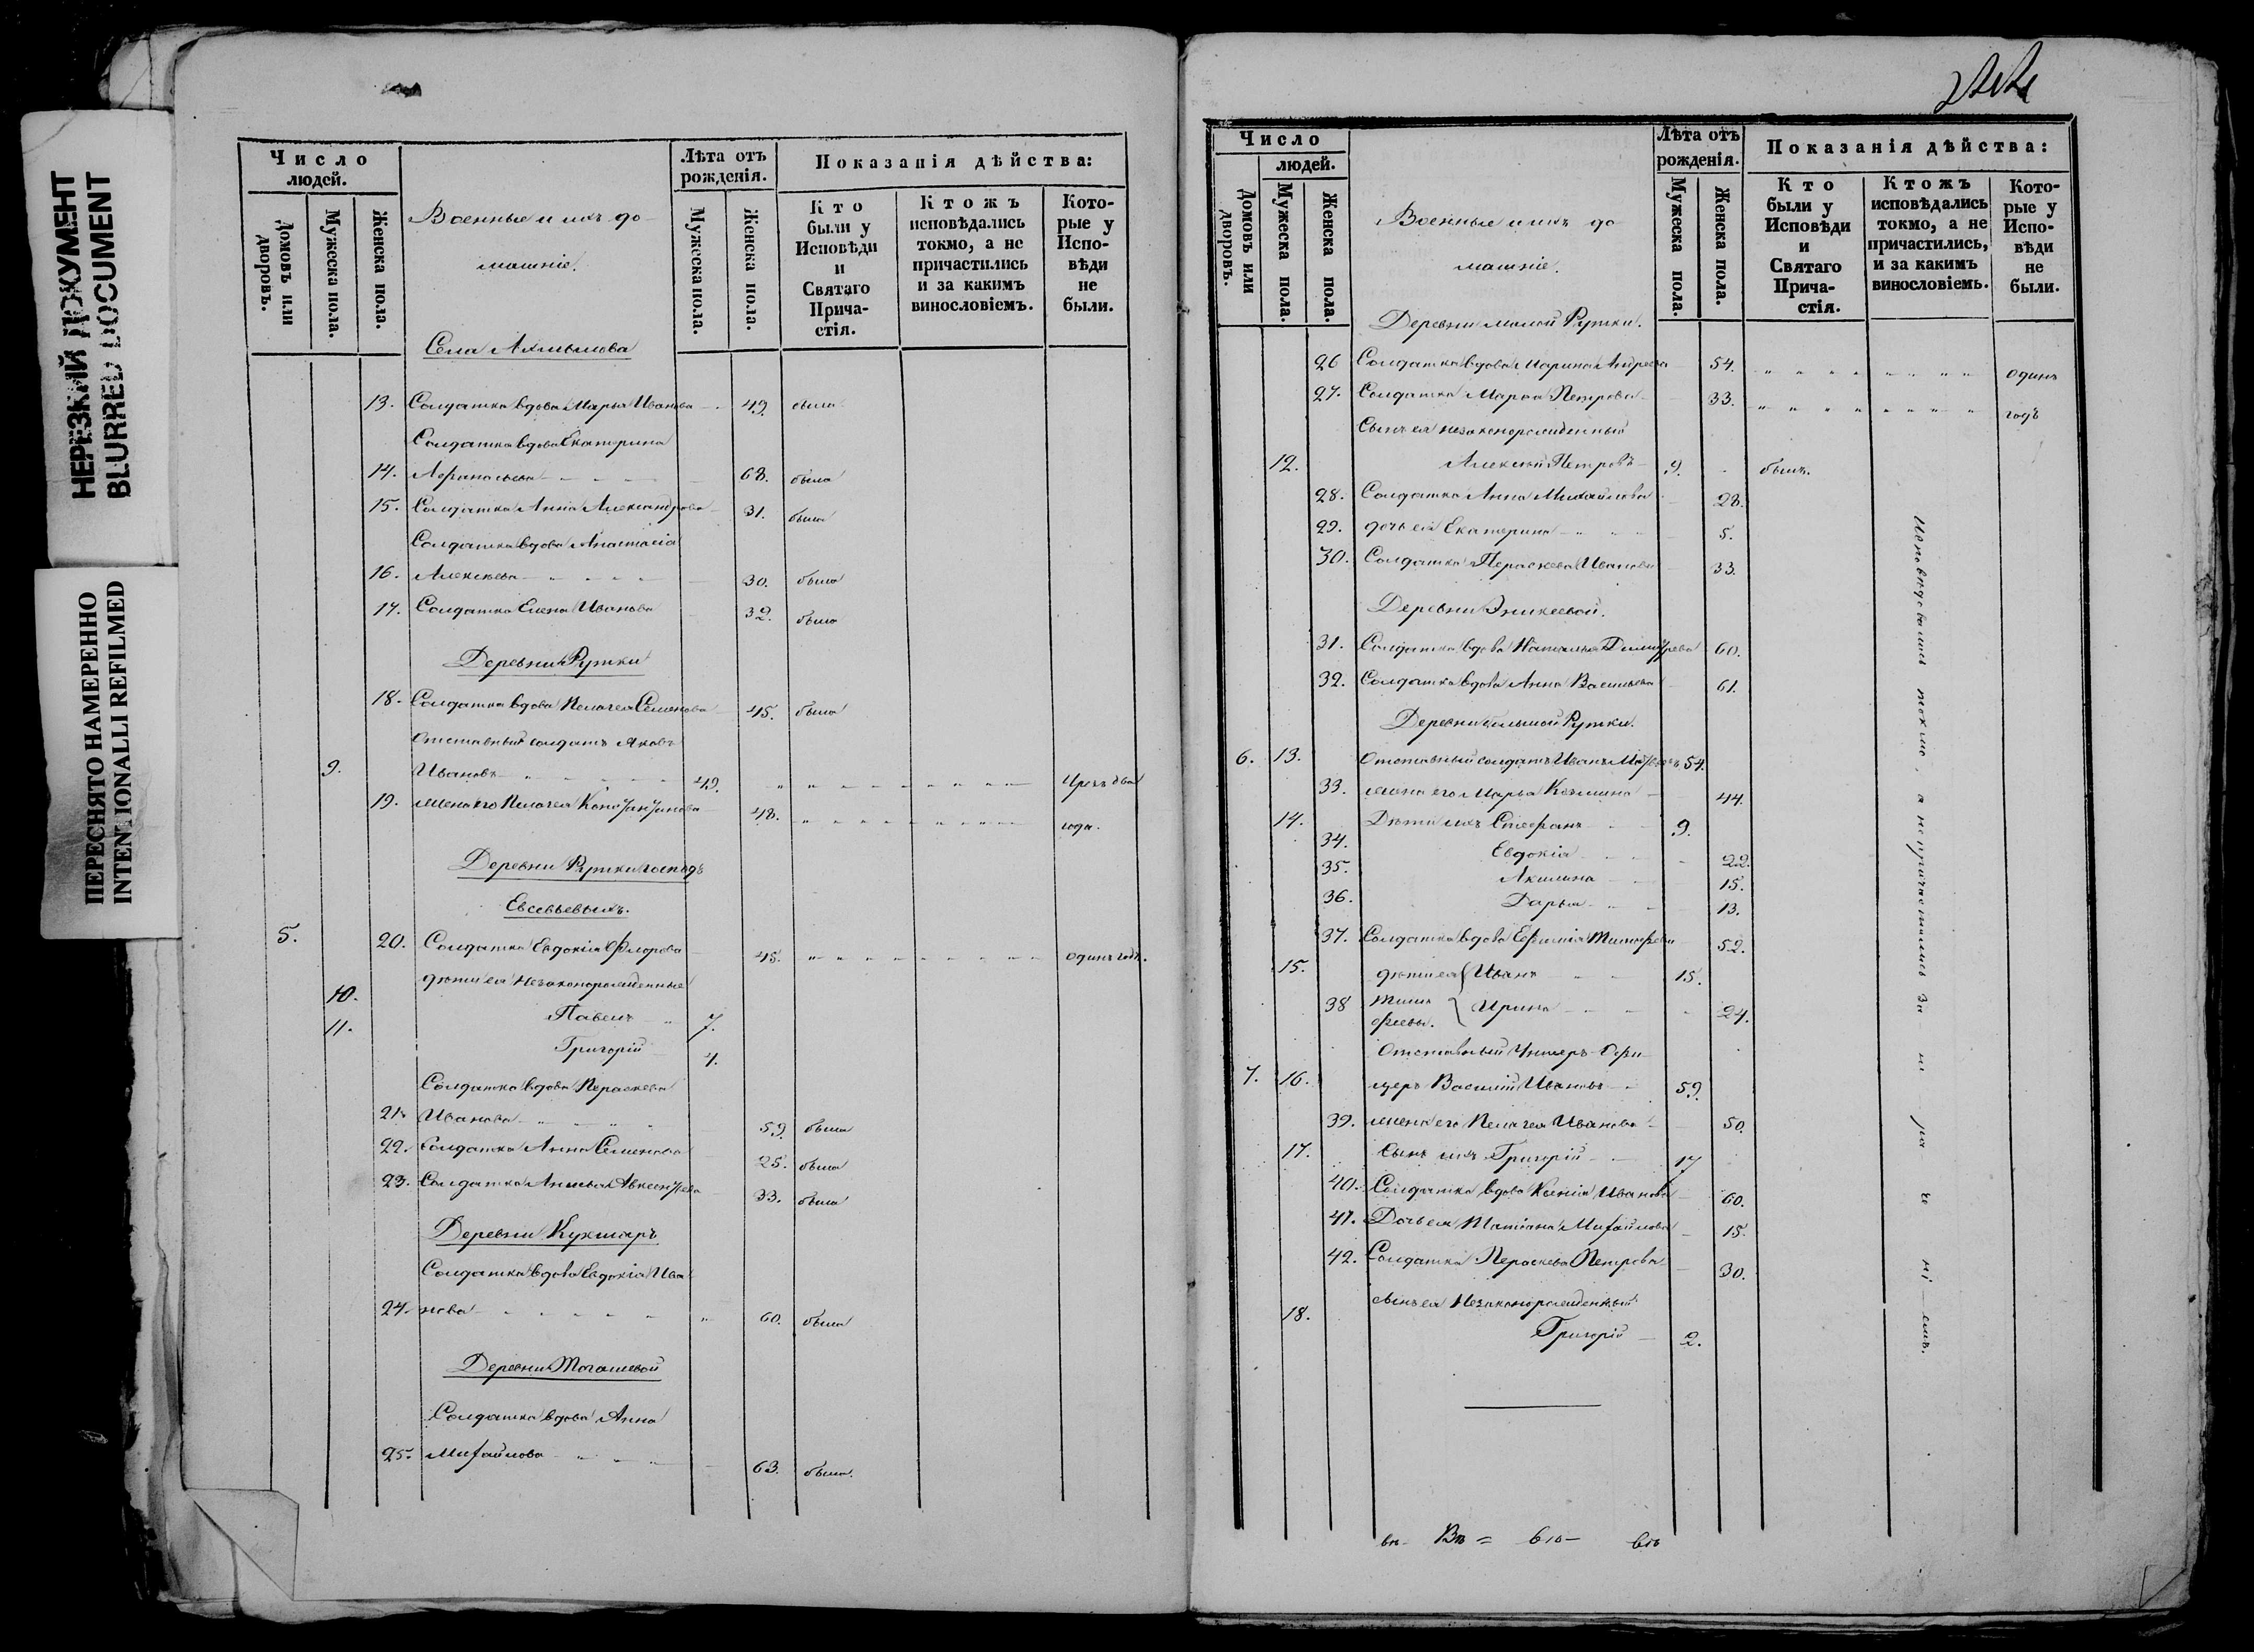 НЕРЕЗКИЙ ДОКУМЕНТ
BLURRED DOCUMENT
ПЕРЕСНЯТО НАМЕРЕННО
INTENTIONALLI REFILMED
Число людей.
Домовъ или дворовъ.
Мужеска пола.
Женска пола.
Военные и ихъ до-
машніе.
Лѣта отъ рожденія.
Мужеска пола.
Женска пола.
Показанія дѣйства:
Кто были у Исповѣди и Святаго Прича-стія.
Ктожъ исповѣдались токмо, а не причастились и за какимъ винословіемъ.
Кото-рые у Испо-вѣди не были.
Села
13. Солдатка вдова Марья Иванова 49. была
Солдатка вдова Екатерина
14. Афанасьева 68. была
15. Солдатка Анна Александрова 31. была
Солдатка вдова Анастасія
16. Алексѣева 30. была
17. Солдатка Елена Иванова 32. была
Деревни Рутки
18. Солдатка вдова Пелагея Семенова 45. была
Отставный солдатъ Яковъ
9. Ивановъ 49. Чрезъ два
19. жена его Пелагея Константинова 48. года.
Деревни Рутки господъ
Евсевьевыхъ.
5. 20. Солдатка Евдокія Флорова 45. одинъ годъ.
дѣти ея незаконорожденные
10. Павелъ 7.
11. Григорій 4.
Солдатка вдова Параскева
21. Иванова 59. была
22. Солдатка Анна Семенова 25. была
23. Солдатка 33. была
Деревни
Солдатка вдова Евдокія Ива
24. нова 60. была
Деревни
Солдатка вдова Анна
25. Михайлова 63. была.
Число людей.
Домовъ или дворовъ.
Мужеска пола.
Женска пола.
Военные и ихъ до
машніе.
Лѣта отъ рожденія.
Мужеска пола.
Женска пола.
Показанія дѣйства:
Кто были у Исповѣди и Святаго Прича-стія.
Ктожъ исповѣдались токмо, а не причастились, и за какимъ винословіемъ.
Кото-рые у Испо-вѣди не были.
Деревни малой Рутки.
26 Солдатка вдова Марина Андреева 54. одинъ
27. Солдатка Марѳа Петрова 33. годъ
Сынъ ея незаконорожденный
12. Алексѣй Петровъ 9. былъ.
28. Солдатка Анна Михайлова 28.
29. дочь ея Екатерина 5.
30. Солдатка Параскева Иванова 33.
Деревни Эникеевой.
31. Солдатка вдова Наталья Димитріева 60.
32. Солдатка вдова Анна Васильева 61.
Деревни большой Рутки.
6. 13. Отставный солдатъ Иванъ 54.
33. жена его Марья Козмина 44.
14. Дѣти ихъ Стефанъ 9.
34. Евдокія 22.
35. Акилина 15.
36. Дарья 13.
37. Солдатка вдова Евфимія Тимофеева 52.
15. дѣти ея Иванъ 15.
38 Тимо феевы. Ирина 24.
Отставный Унтеръ-Офи-
7. 16. церъ Василій Ивановъ 59.
39. жена его Пелагея Иванова 50.
17. Сынъ ихъ Григорій 17
40. Солдатка вдова Ксенія Иванова 60.
41. Дочь ея Татіана Михайлова 15.
42. Солдатка Параскева Петрова 30.
сынъ ея незаконорожденный
18. Григорій 2.
Исповѣдовались токмо, а не причастились за нераченіемъ.